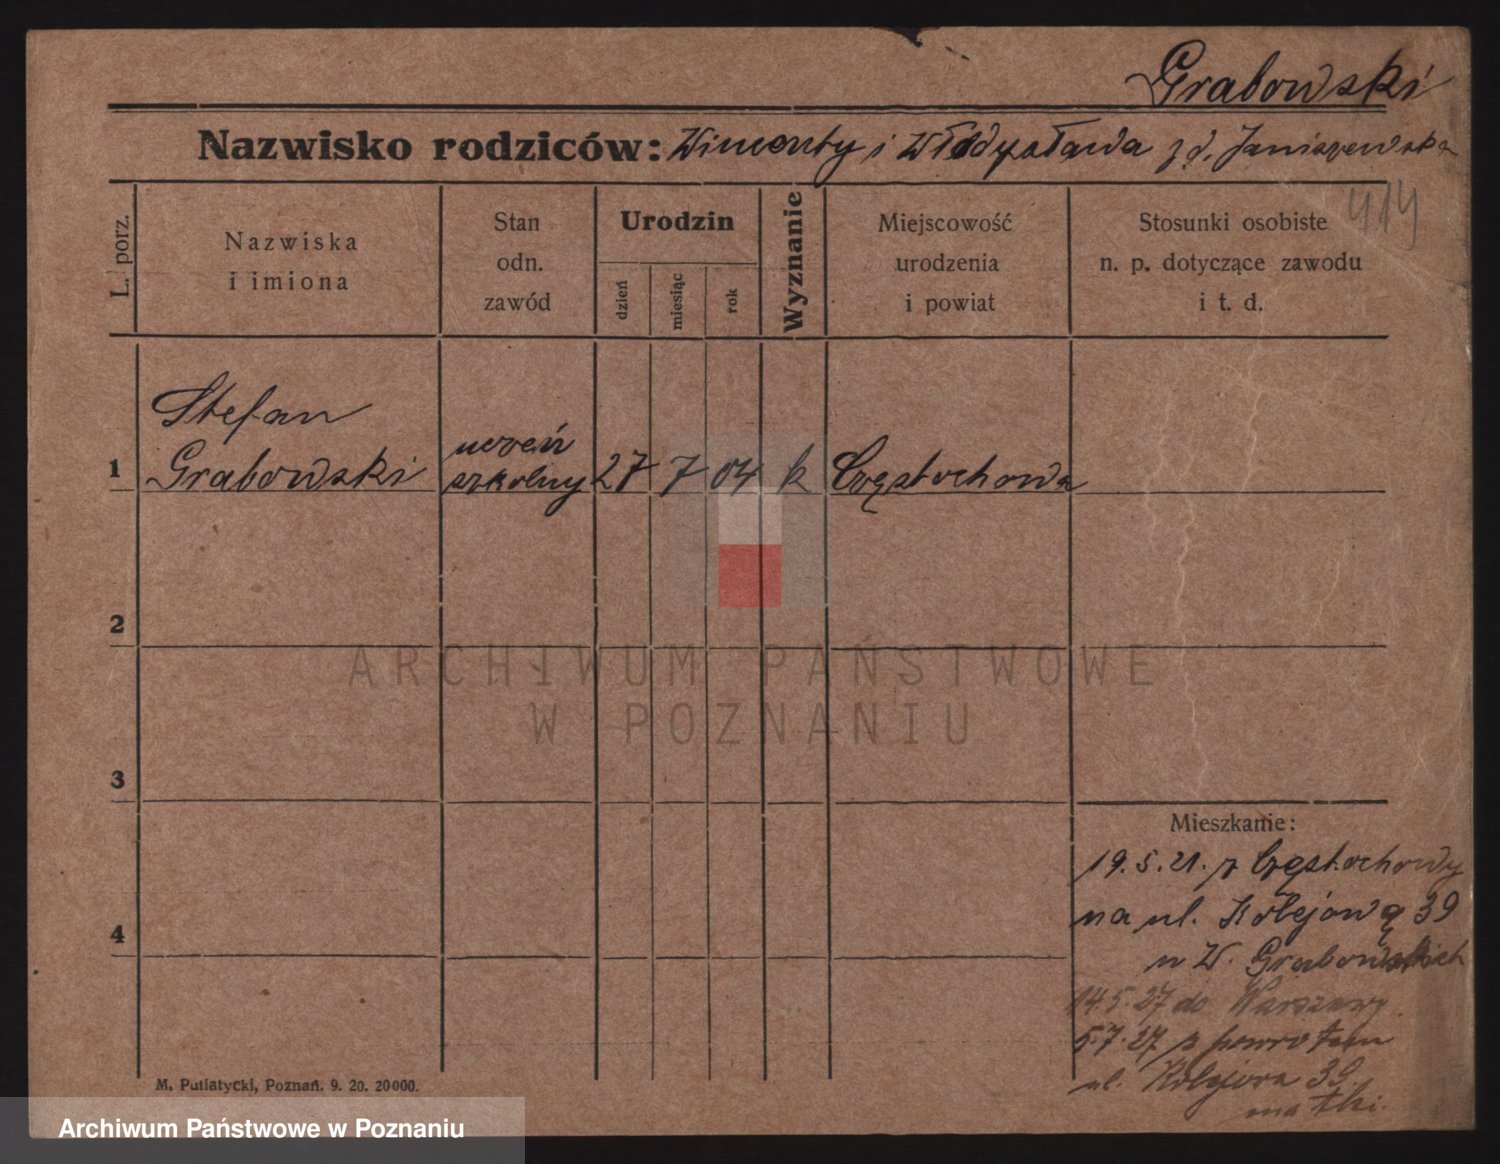 Grabowski
Nazwisko rodziców: Wincenty i Władysława z d. Janiszewska
419
L. porz.
Nazwiska i imiona
Stan odn. zawód
Urodzin
dzień
miesiąc
rok
Wyznanie
Miejscowość urodzenia i powiat
Stosunki osobiste n. p. dotyczące zawodu i t. d.
Stefan
1 Grabowski uczeń szkolny 27 7 04 k Częstochowa
2
3
4
ARCHIWUM PAŃSTWOWE
W POZNANIU
Mieszkanie:
19.5.21. z Częstochowy
na ul. Kolejową 39
u W. Grabowskich
14.5.27 do Warszawy.
5.7.27 z powrotem
ul. Kolejowa 39.
matki.
M. Putiatycki, Poznań. 9. 20. 20000.
Archiwum Państwowe w Poznaniu